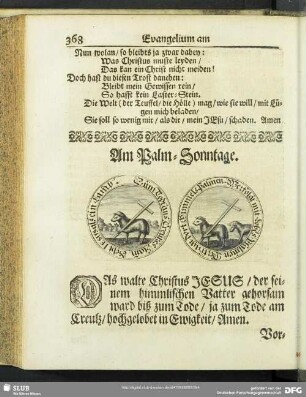 368 Evangelium am
Nun wolan/ so bleibts ja zwar dabey:
Was Christus muste leyden/
Das kan ein Christ nicht meiden!
Doch hast du diesen Trost daneben:
Bleibt mein Gewissen rein/
So hafft kein Laster-Stein.
Die Welt (der Teuffel/ die Hölle) mag/ wie sie will/ mit Lü-
gen mich beladen/
Sie soll so wenig mir/ als dir/ mein JEsu/ schaden. Amen
Am Palm-Sonntage.
DAs walte Christus JESUS/ der sei-
nem himmlischen Vatter gehorsam
ward biß zum Tode/ ja zum Tode am
Creutz/ hochgelobet in Ewigkeit/ Amen.
Vor-
SLUB